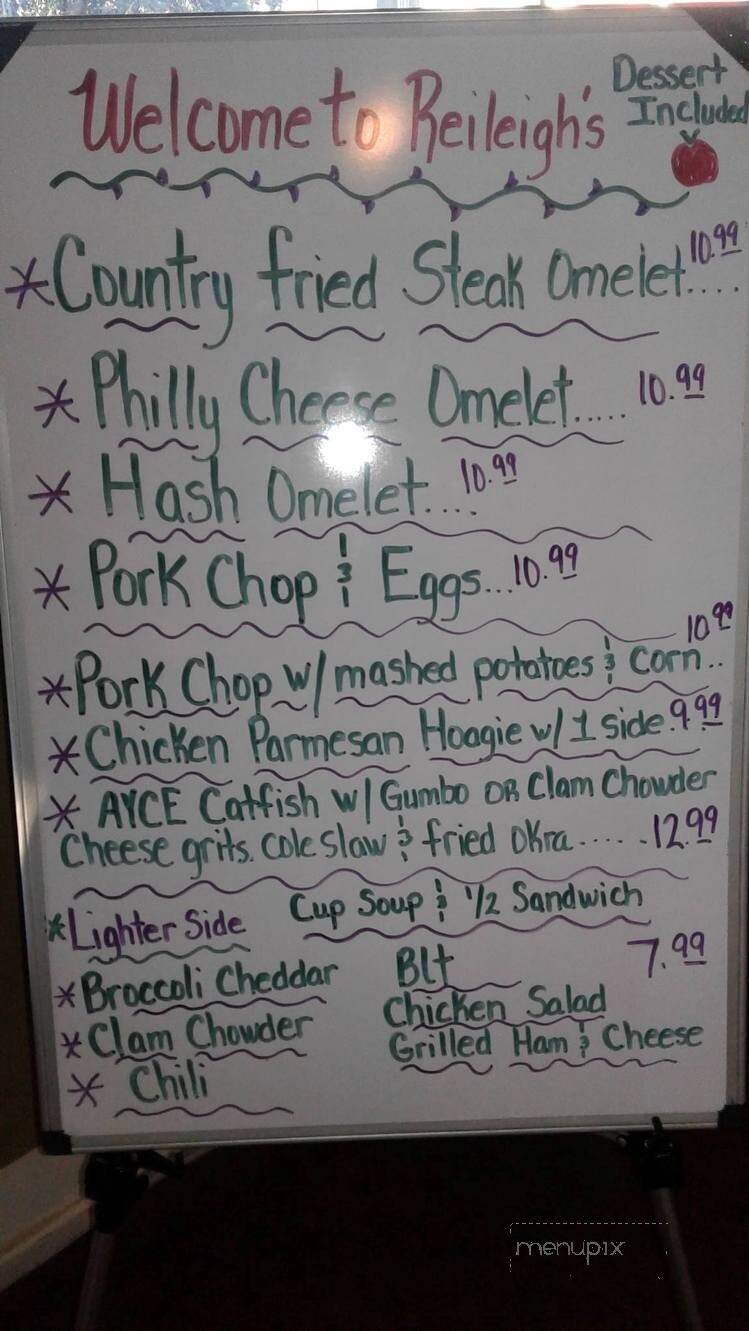 Welcome to Reileigh's
Dessert
Included
*Country fried Steak Omelet.... 10.99
* Philly Cheese Omelet..... 10.99
* Hash Omelet.... 10.99
* Pork Chop & Eggs...10.99
*Pork Chop w/ mashed potatoes & corn.. 10.99
*Chicken Parmesan Hoagie w/ 1 side. 9.99
* AYCE Catfish w/ Gumbo OR Clam Chowder
Cheese grits. Cole Slaw & fried OKra...... 12.99
*Lighter Side Cup Soup & 1/2 Sandwich
7.99
*Broccoli Cheddar Blt
*Clam Chowder Chicken Salad
* Chili Grilled Ham & Cheese
menupix